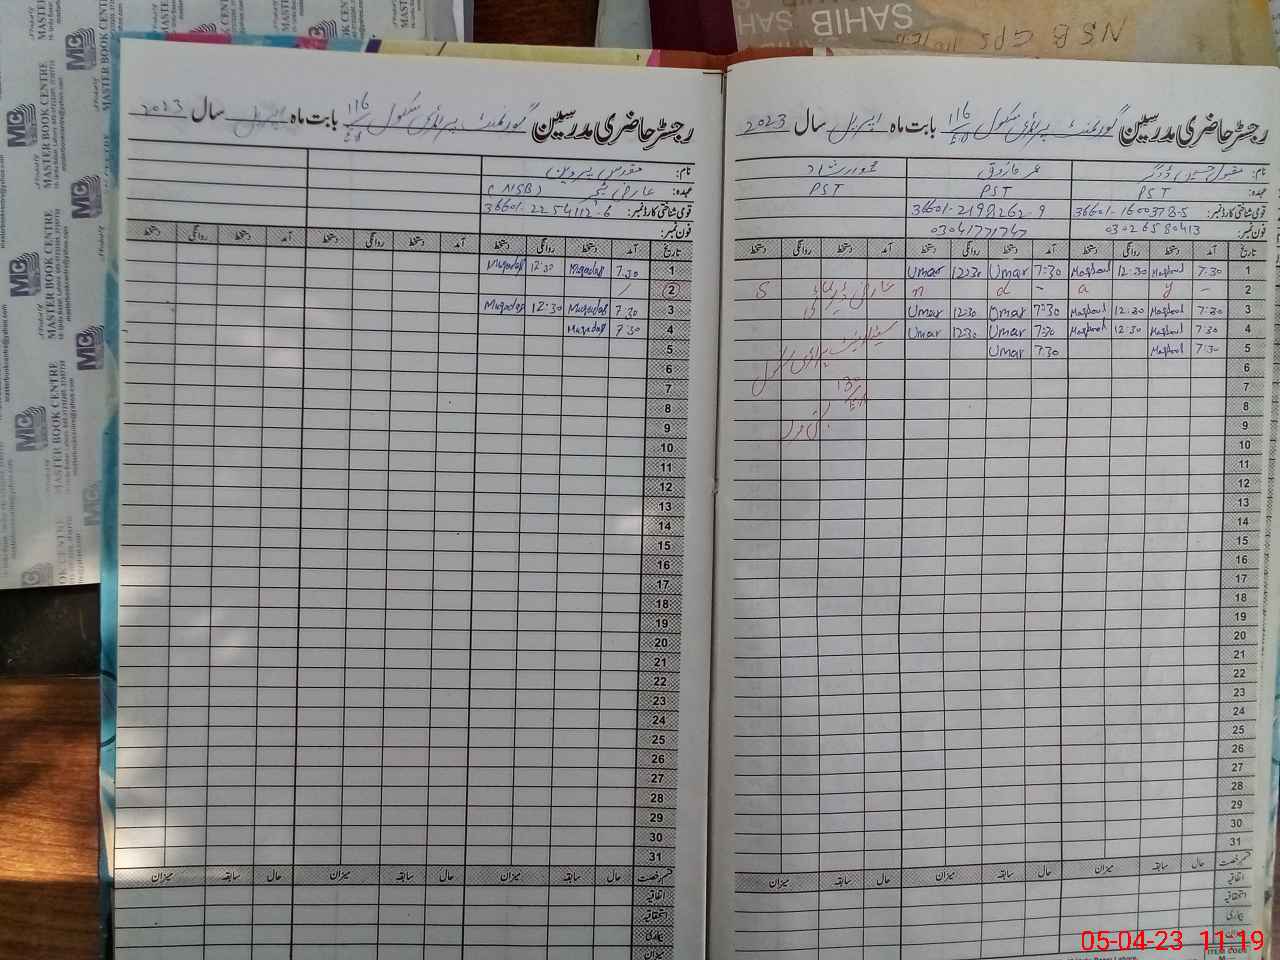 SAHIB
SAH
NSB GPS
MC
MASTER BOOK CENTRE
masterbookcentre@yahoo.com
رجسٹر حاضری مدرسین گورنمنٹ پرائمری سکول 116/EB بابت ماہ اپریل سال 2023
نام: مقبول حسین ڈوگر عمر فاروق
عہدہ: PST PST PST
قومی شناختی کارڈ نمبر: 36601-1600378-5 36601-2198262-9
فون نمبر: 03026580413 03041771747
تاریخ آمد دستخط روانگی دستخط آمد دستخط روانگی دستخط آمد دستخط روانگی دستخط
1 7:30 Maqbool 12:30 Maqbool 7:30 Umar 12:30 Umar
2 - y a - d n S
3 7:30 Maqbool 12:30 Maqbool 7:30 Umar 12:30 Umar
4 7:30 Maqbool 12:30 Maqbool 7:30 Umar 12:30 Umar
5 7:30 Maqbool 7:30 Umar
6
7
8
9
10
11
12
13
14
15
16
17
18
19
20
21
22
23
24
25
26
27
28
29
30
31
قسم رخصت حال سابقہ میزان حال سابقہ میزان حال سابقہ میزان
اتفاقیہ
استحقاقیہ
بیماری
میزان
رجسٹر حاضری مدرسین گورنمنٹ پرائمری سکول 116/EB بابت ماہ اپریل سال 2023
نام: مقدس پروین
عہدہ: عارضی ٹیچر (NSB)
قومی شناختی کارڈ نمبر: 36601-2254112-6
فون نمبر:
تاریخ آمد دستخط روانگی دستخط آمد دستخط روانگی دستخط آمد دستخط روانگی دستخط
1 7:30 Muqadas 12:30 Muqadas
2
3 7:30 Muqadas 12:30 Muqadas
4 7:30 Muqadas
5
6
7
8
9
10
11
12
13
14
15
16
17
18
19
20
21
22
23
24
25
26
27
28
29
30
31
قسم رخصت حال سابقہ میزان حال سابقہ میزان حال سابقہ میزان
اتفاقیہ
استحقاقیہ
بیماری
میزان
05-04-23 11:19